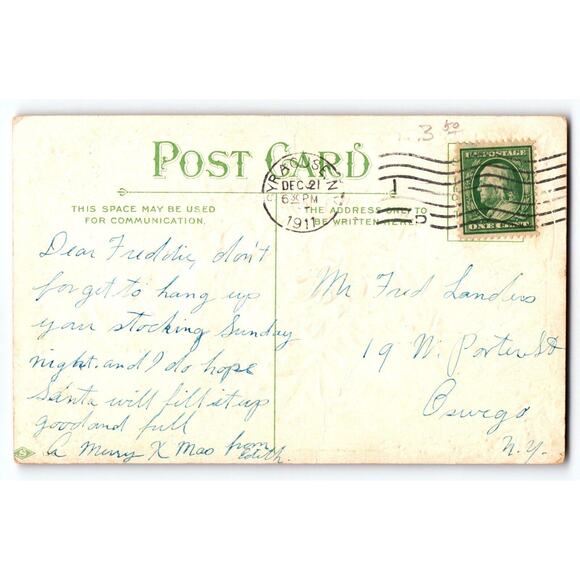 3 50
POST CARD
SYRACUSE, N.Y.
DEC 21
630 PM
1911
1
U.S. POSTAGE
ONE CENT
THIS SPACE MAY BE USED
FOR COMMUNICATION.
THE ADDRESS ONLY TO
BE WRITTEN HERE
Dear Freddie, don't
forget to hang up
your stocking Sunday
night. and I do hope
Santa will fill it up
good and full
A Merry X Mas from
Edith.
Mr Fred Landers
19 W. Porter St
Oswego
N.Y.